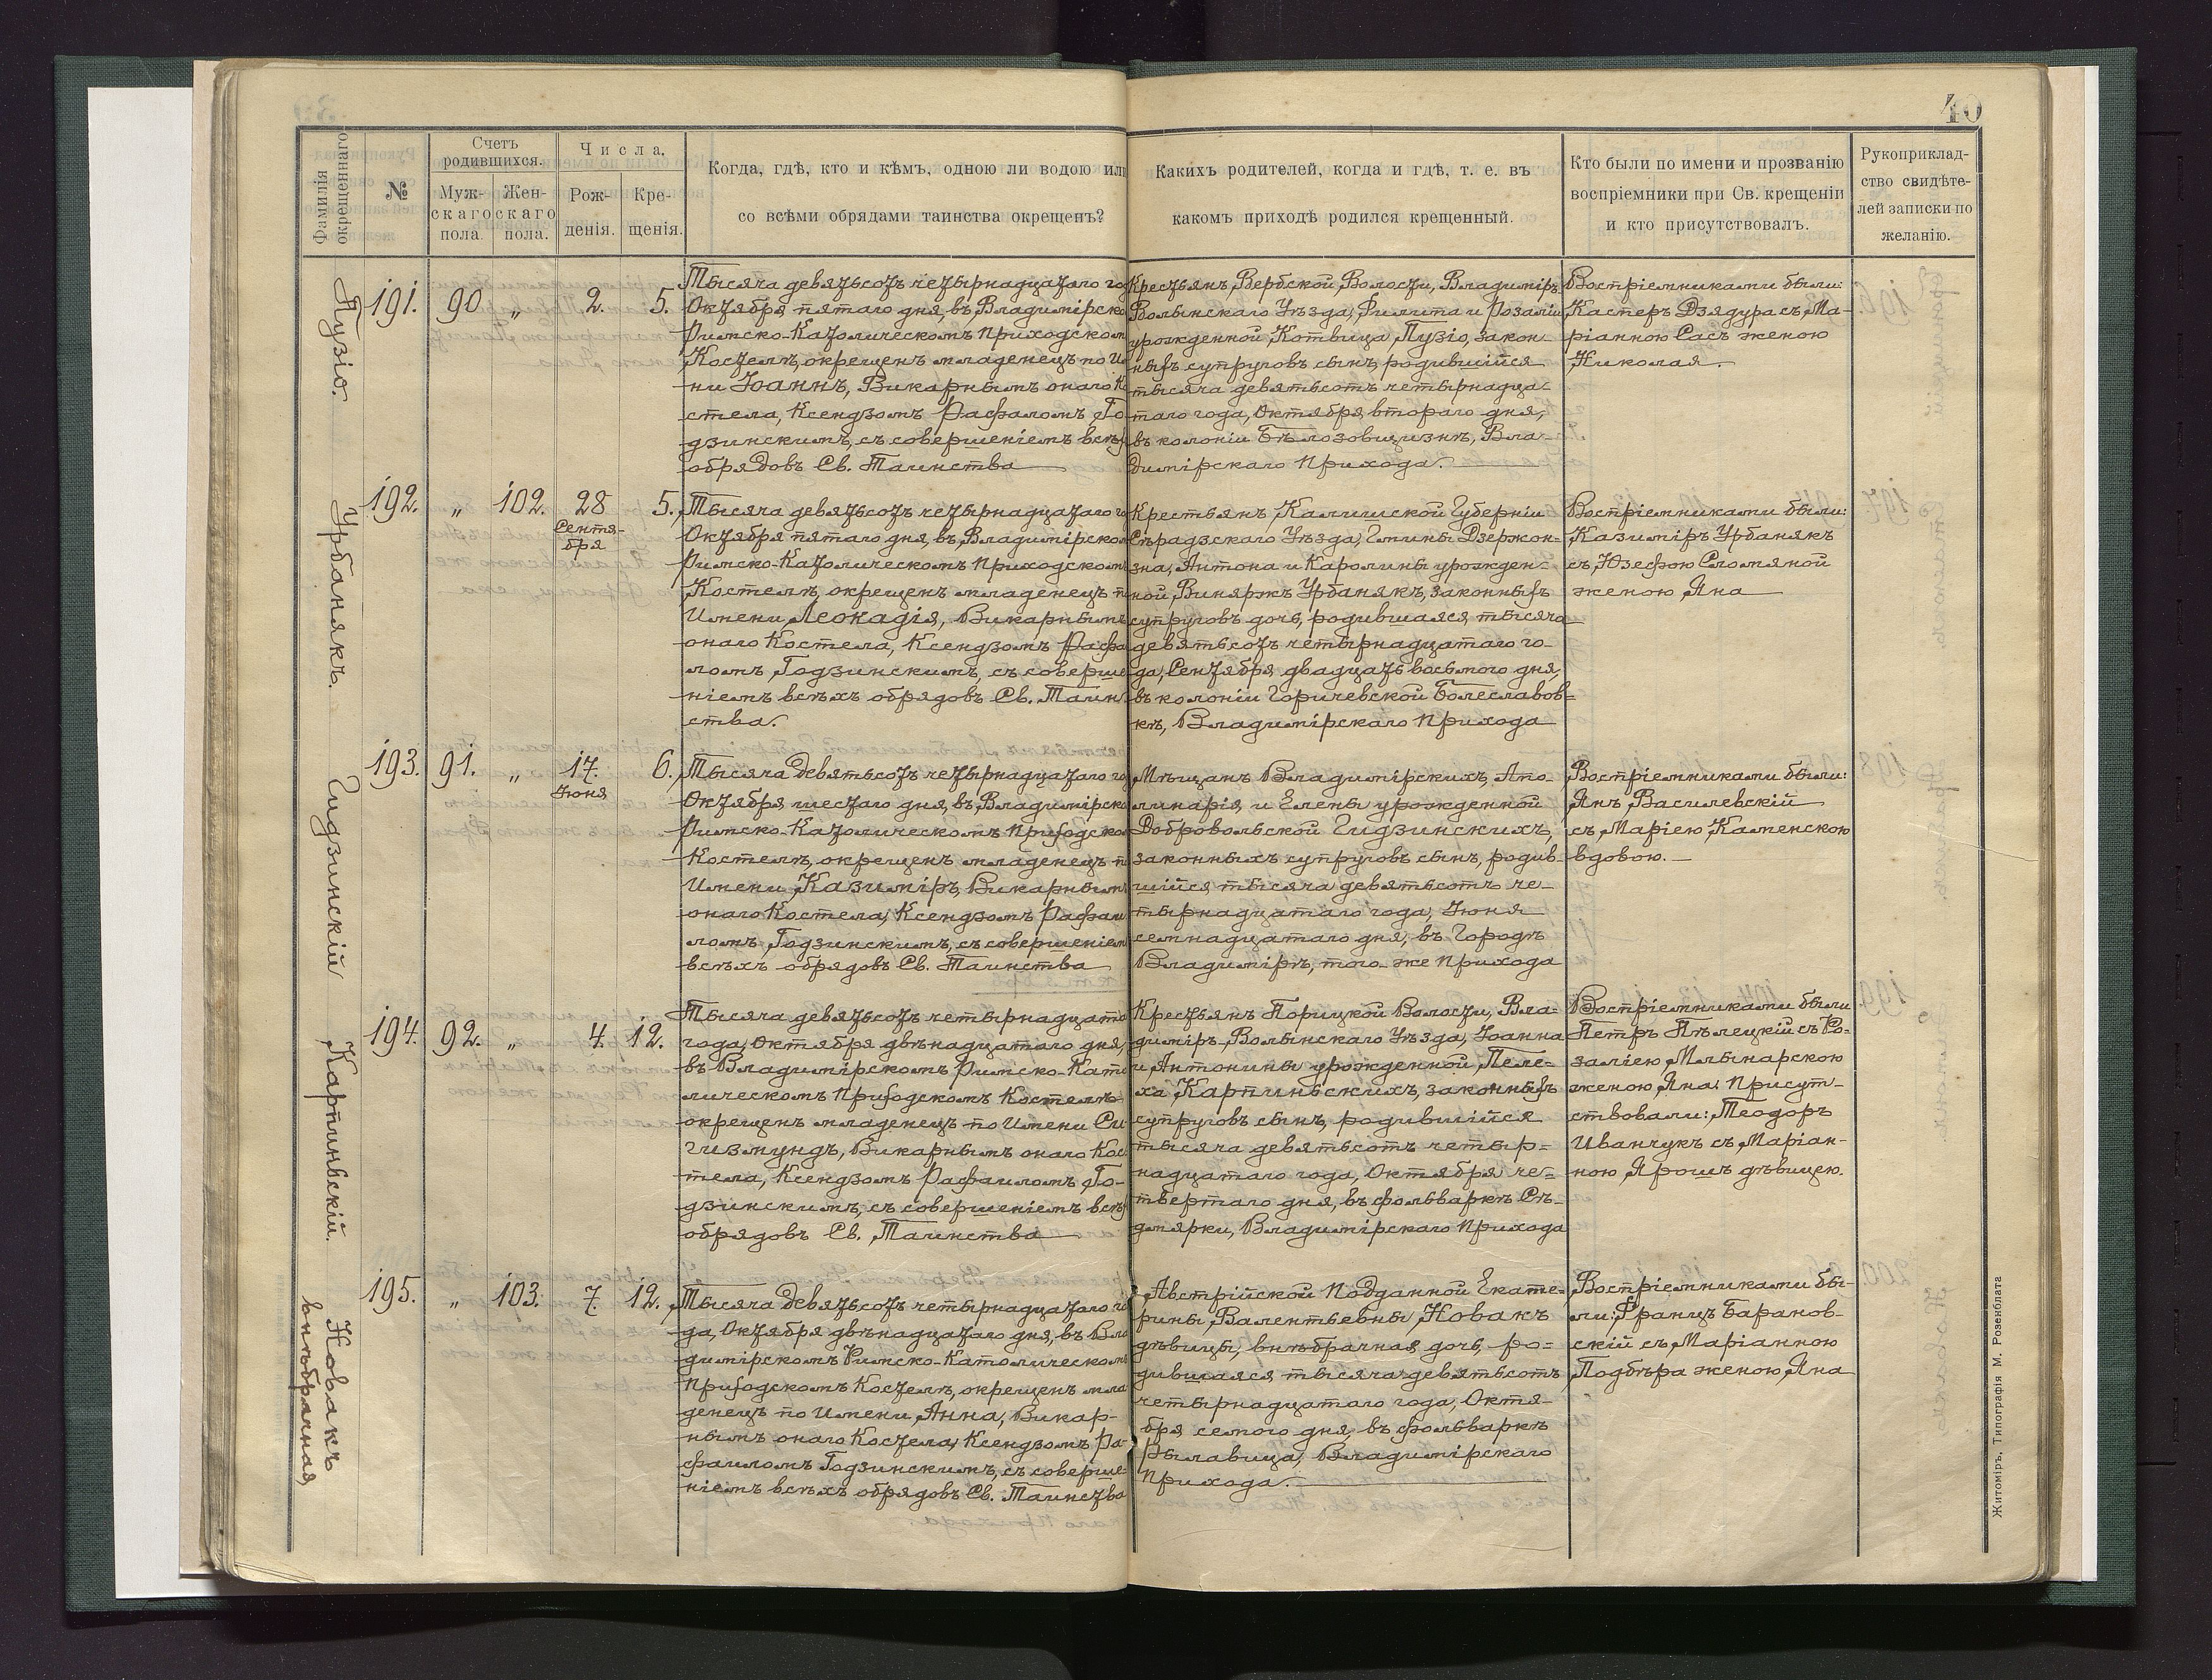 40
Фамилія
окрещеннаго
№
Счетъ
родившихся.
Муж-
скаго
пола.
Жен-
скаго
пола.
Числа.
Рож-
денія.
Кре-
щенія.
Когда, гдѣ, кто и кѣмъ, одною ли водою или
со всѣми обрядами таинства окрещенъ?
Какихъ родителей, когда и гдѣ, т. е. въ
какомъ приходѣ родился крещенный.
Кто были по имени и прозванію
воспріемники при Св. крещеніи
и кто присутствовалъ.
Рукоприклад-
ство свидѣте-
лей записки по
желанію.
Пузіо.
191. 90 „ 2. 5.
Тысяча девятьсотъ четырнадцатаго го
Октября пятаго дня, въ Владимірско
Римско-Католическомъ Приходском
Костелѣ, окрещенъ младенецъ по И
ни Іоаннъ, Викарнымъ онаго Ко
стела, Ксендзомъ Рафаломъ Го
дзинскимъ, съ совершеніемъ всѣх
обрядовъ Св. Таинства
Крестьянъ, Вербской Волости, Владиміръ
Волынскаго Уѣзда, Филипа и Розаліи
урожденной Котвица, Пузіо, закон-
ныхъ супруговъ сынъ, родившійся
тысяча девятьсотъ четырнадца-
таго года, Октября втораго дня,
въ колоніи Бѣлозовщизнѣ, Вла-
димірскаго Прихода.
Воспріемниками были:
Касперъ Дзядура съ Ма-
ріанною Сасъ женою
Николая.
Урбанякъ.
192. „ 102. 28 5.
Сентя-
бря
Тысяча девятьсотъ четырнадцатаго го
Октября пятаго дня, въ Владимірско
Римско-Католическомъ Приходскомъ
Костелѣ, окрещенъ младенецъ п
Имени Леокадія, Викарнымъ
онаго Костела, Ксендзомъ Рафа
ломъ Годзинскимъ, съ соверше
ніемъ всѣхъ обрядовъ Св. Таин-
ства.
Крестьянъ, Калишской Губерніи
Сѣрадзскаго Уѣзда, Гмины Дзержон-
зна, Антона и Каролины урожден-
ной Виняржъ Урбанякъ, законныхъ
супруговъ дочь, родившаяся тысяча
девятьсотъ четырнадцатаго го-
да, Сентября двадцать восьмого дня,
въ колоніи Горичевской Болеславов-
кѣ, Владимірскаго Прихода
Воспріемниками были:
Казиміръ Урбанякъ
съ Юзефою Сломяной
женою Яна
Гидзинскій
193. 91. „ 17. 6.
Іюня
Тысяча девятьсотъ четырнадцатаго го
Октября шестаго дня, въ Владимірско
Римско-Католическомъ Приходско
Костелѣ, окрещенъ младенецъ п
Имени Казиміръ, Викарным
онаго Костела, Ксендзомъ Рафаи
ломъ Годзинскимъ, съ совершеніем
всѣхъ обрядовъ Св. Таинства
Мѣщанъ Владимірскихъ, Апо-
линарія и Елены урожденной
Добровольской Гидзинскихъ,
законныхъ супруговъ сынъ, родив-
шійся тысяча девятьсотъ че-
тырнадцатаго года, Іюня
семнадцатаго дня, въ Городѣ
Владимірѣ, того-же Прихода
Воспріемниками были:
Янъ Василевскій
съ Маріею Каменскою
вдовою.
Карпиньскій.
194. 92. „ 4. 12.
Тысяча девятьсотъ четырнадцато
года, Октября двѣнадцатаго дня,
въ Владимірскомъ Римско-Като
лическомъ Приходскомъ Костелѣ
окрещенъ младенецъ по Имени Си
гизмундъ, Викарнымъ онаго Кос
тела, Ксендзомъ Рафаиломъ Го-
дзинскимъ, съ совершеніемъ всѣх
обрядовъ Св. Таинства
Крестьянъ Порицкой Волости, Вла-
диміръ-Волынскаго Уѣзда, Іоанна
и Антонины урожденной Пеле-
ха Карпиньскихъ, законныхъ
супруговъ сынъ, родившійся
тысяча девятьсотъ четыр-
надцатаго года, Октября че-
твертаго дня, въ фольваркѣ Сѣ-
дмярки, Владимірскаго Прихода
Воспріемниками были
Петръ Пѣлецкій съ Ро-
заліею Млынарскою
женою Яна. Присут-
ствовали: Теодоръ
Иванчукъ съ Маріан-
ною Ярошъ дѣвицею.
Новакъ
внѣбрачная
195. „ 103. 7. 12.
Тысяча девятьсотъ четырнадцатаго го
да, Октября двѣнадцатаго дня, въ Вла
димірскомъ Римско-Католическомъ
Приходскомъ Костелѣ, окрещенъ мла
денецъ по Имени, Анна, Викар-
нымъ онаго Костела, Ксендзомъ Ра-
фаиломъ Годзинскимъ, съ соверше
ніемъ всѣхъ обрядовъ Св. Таинства
Австрійской Подданной Екате-
рины Валентьевны Новакъ
дѣвицы, внѣбрачная дочь, ро-
дившаяся тысяча девятьсотъ
четырнадцатаго года, Октя-
бря семого дня, въ фольваркѣ
Рылавица, Владимірскаго
Прихода.
Воспріемниками бы-
ли: Францъ Баранов-
скій съ Маріанною
Подбѣра женою Яна
Житоміръ, Типографія М. Розенблата